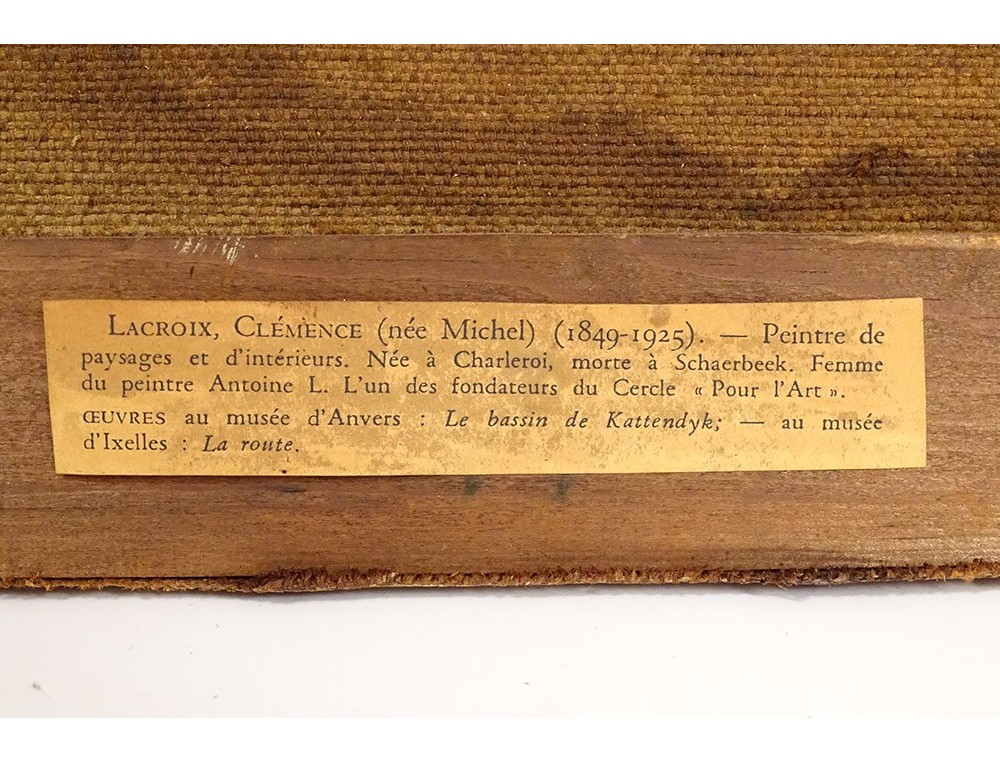 LACROIX, CLÉMENCE (née Michel) (1849-1925). — Peintre de
paysages et d'intérieurs. Née à Charleroi, morte à Schaerbeek. Femme
du peintre Antoine L. L'un des fondateurs du Cercle « Pour l'Art ».
ŒUVRES au musée d'Anvers : Le bassin de Kattendyk; — au musée
d'Ixelles : La route.